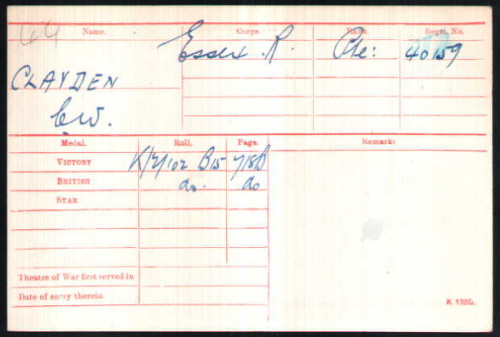 Name. Corps. Rank. Regtl. No.
Essex R. Pte: 40159
CLAYDEN
C.W.
Medal. Roll. Page. Remarks.
VICTORY K/2/102 B15 718B
BRITISH do. do
STAR
Theatre of War first served in
Date of entry therein
K. 1380.